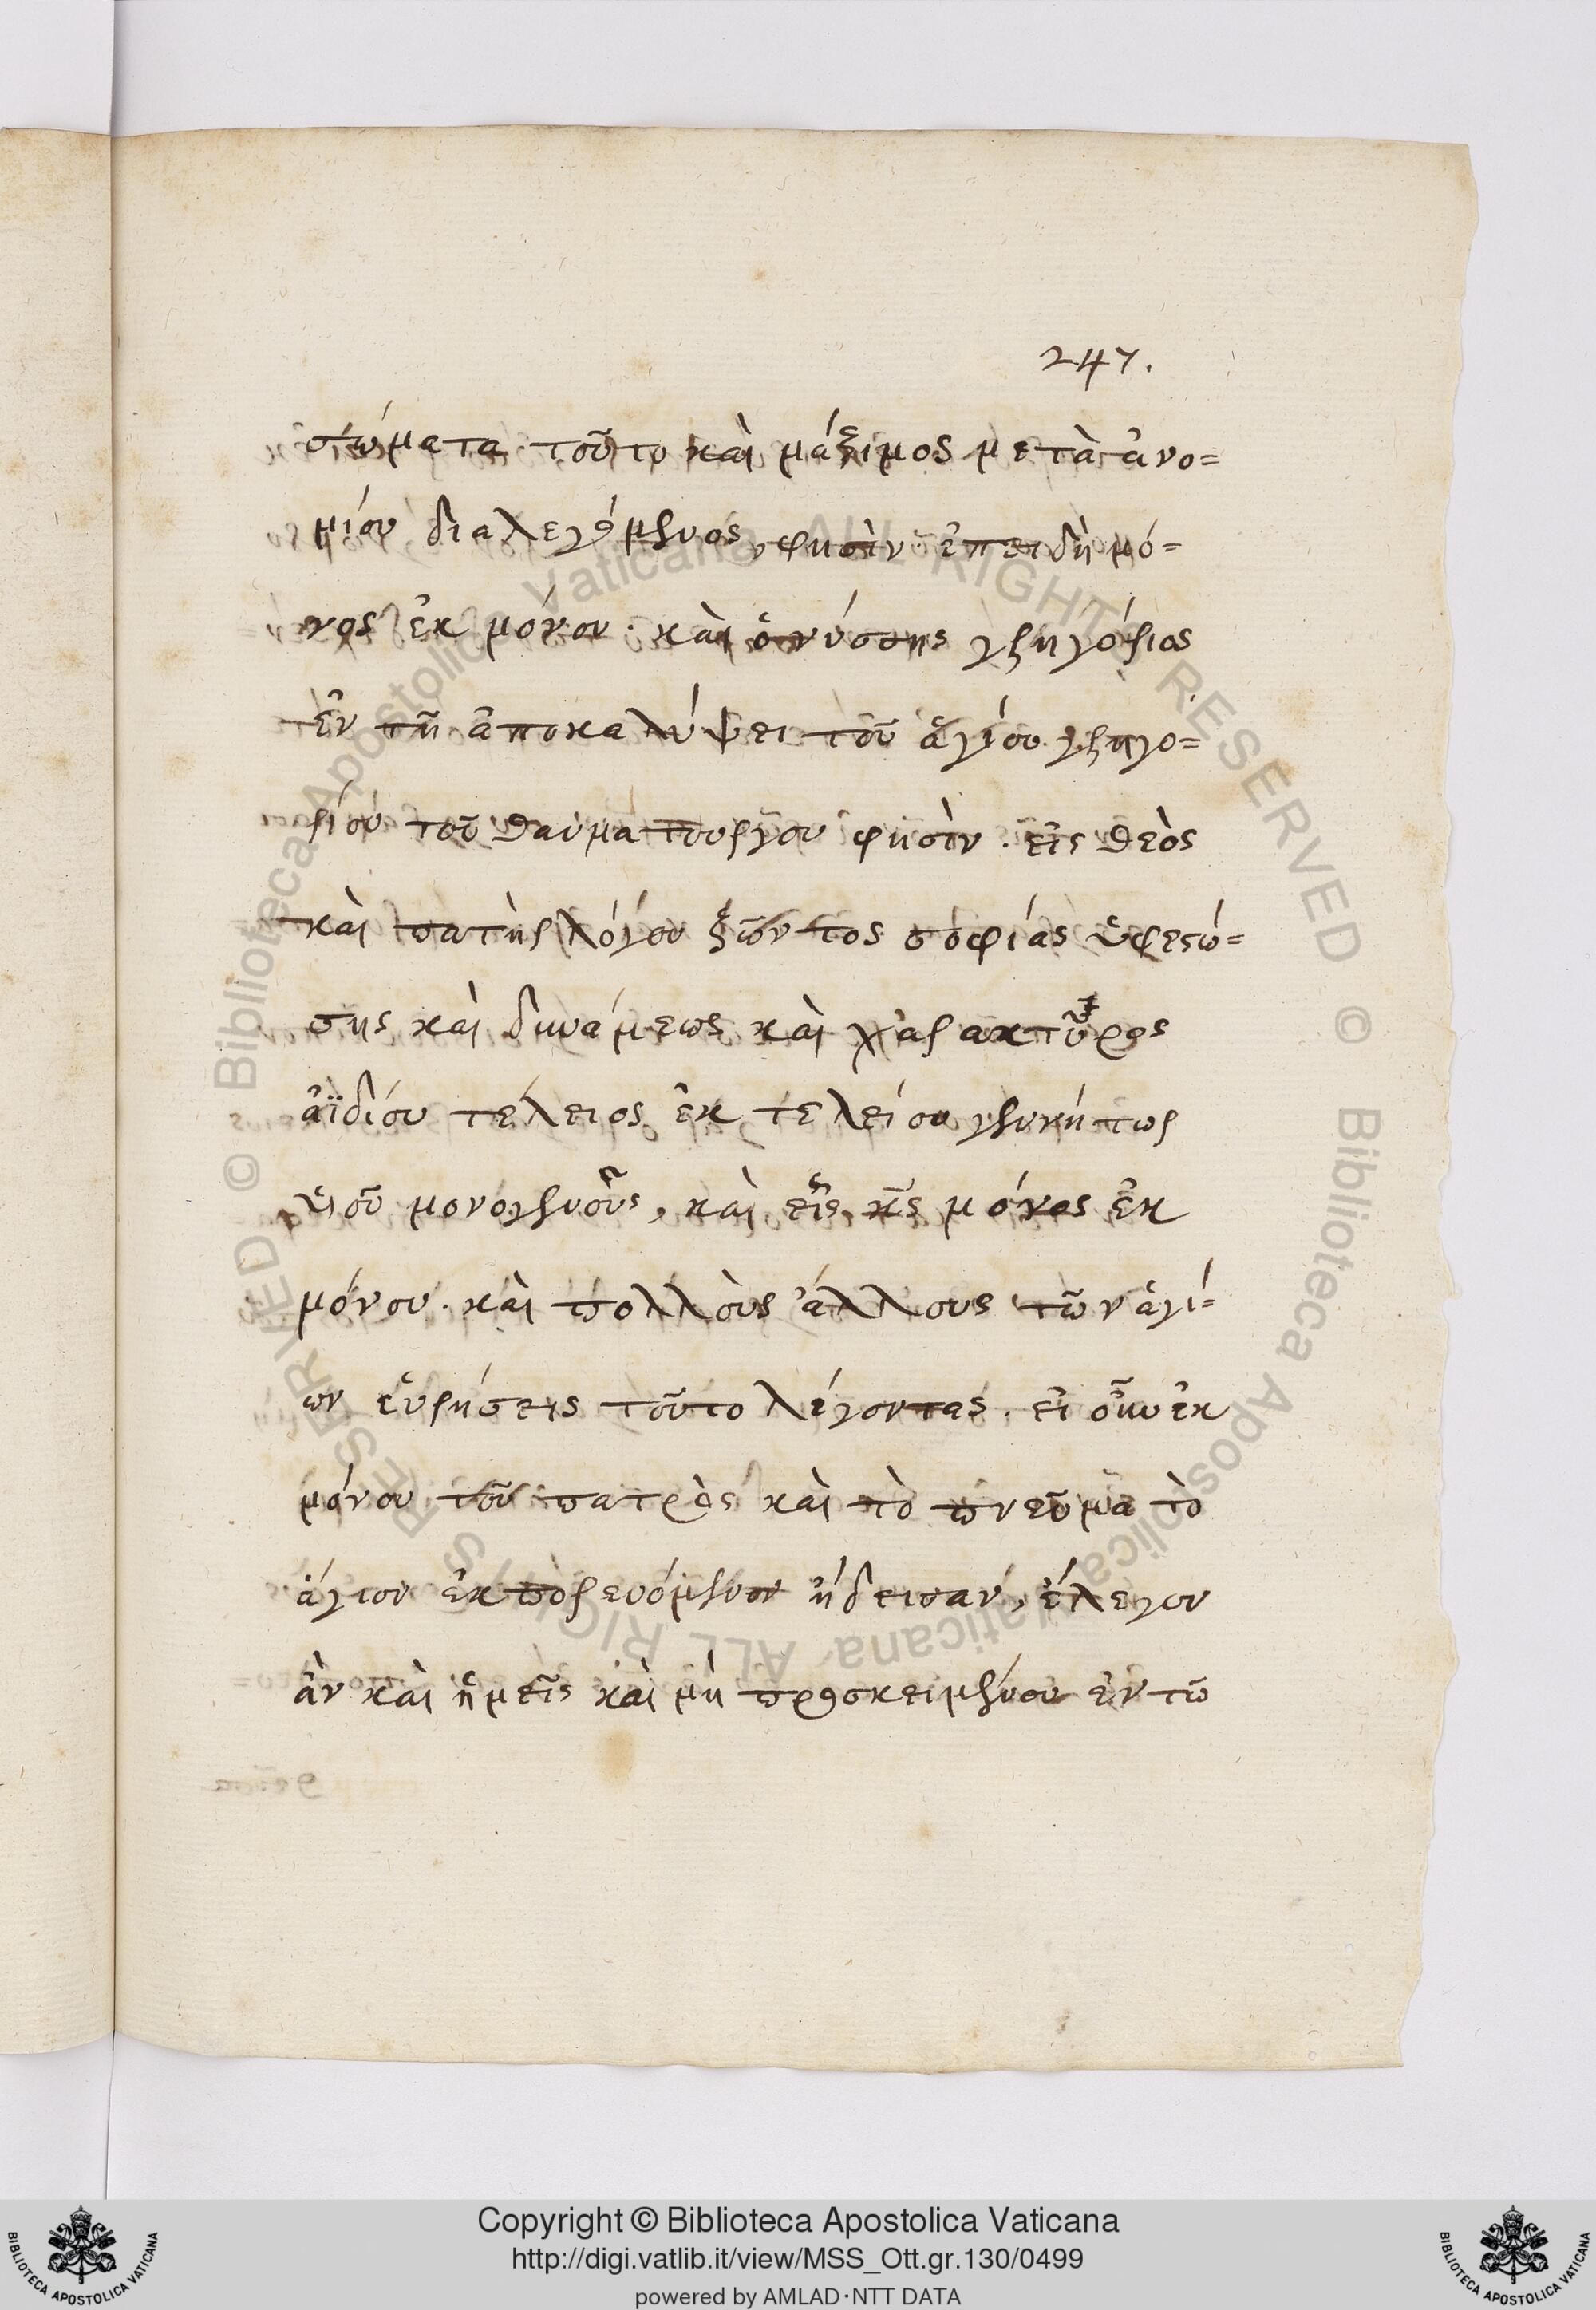 247.
σώματα τοῦτο καὶ μάξιμος μετὰ ἀνο=
μίου διαλεγόμενος, φησὶν ἐπειδὴ μό=
νος ἐκ μόνου. καὶ ὁ νύσσης γρηγόριος
ἐν τῇ ἀποκαλύψει τοῦ ἁγίου γρηγο=
ρίου τοῦ θαυματουργου φησὶν. εἷς θεὸς
καὶ πατὴρ λόγου ζῶντος σοφίας ὑφεστώ=
σης καὶ δυνάμεως καὶ χαρακτῆρος
ἀϊδίου τέλειος ἐκ τελείου γεννήτωρ
ὑιοῦ μονογενοῦς, καὶ εἷς κς μόνος ἐκ
μόνου. καὶ πολλοὺς ἄλλους τῶν ἁγί=
ων εὑρήσεις τοῦτο λέγοντας. εἰ οὖν ἐκ
μόνου τοῦ πατρὸς καὶ τὸ πνεῦμα τὸ
ἅγιον ἐκπορευόμενον ᾔδεισαν, ἔλεγον
ἂν καὶ ἡμεῖς καὶ μὴ προσκειμένου ἐν τῶ
Copyright © Biblioteca Apostolica Vaticana
http://digi.vatlib.it/view/MSS_Ott.gr.130/0499
powered by AMLAD·NTT DATA
© Biblioteca Apostolica Vaticana ALL RIGHTS RESERVED © Biblioteca Apostolica Vaticana ALL RIGHTS RESERVED
BIBLIOTECA APOSTOLICA VATICANA
BIBLIOTECA APOSTOLICA VATICANA